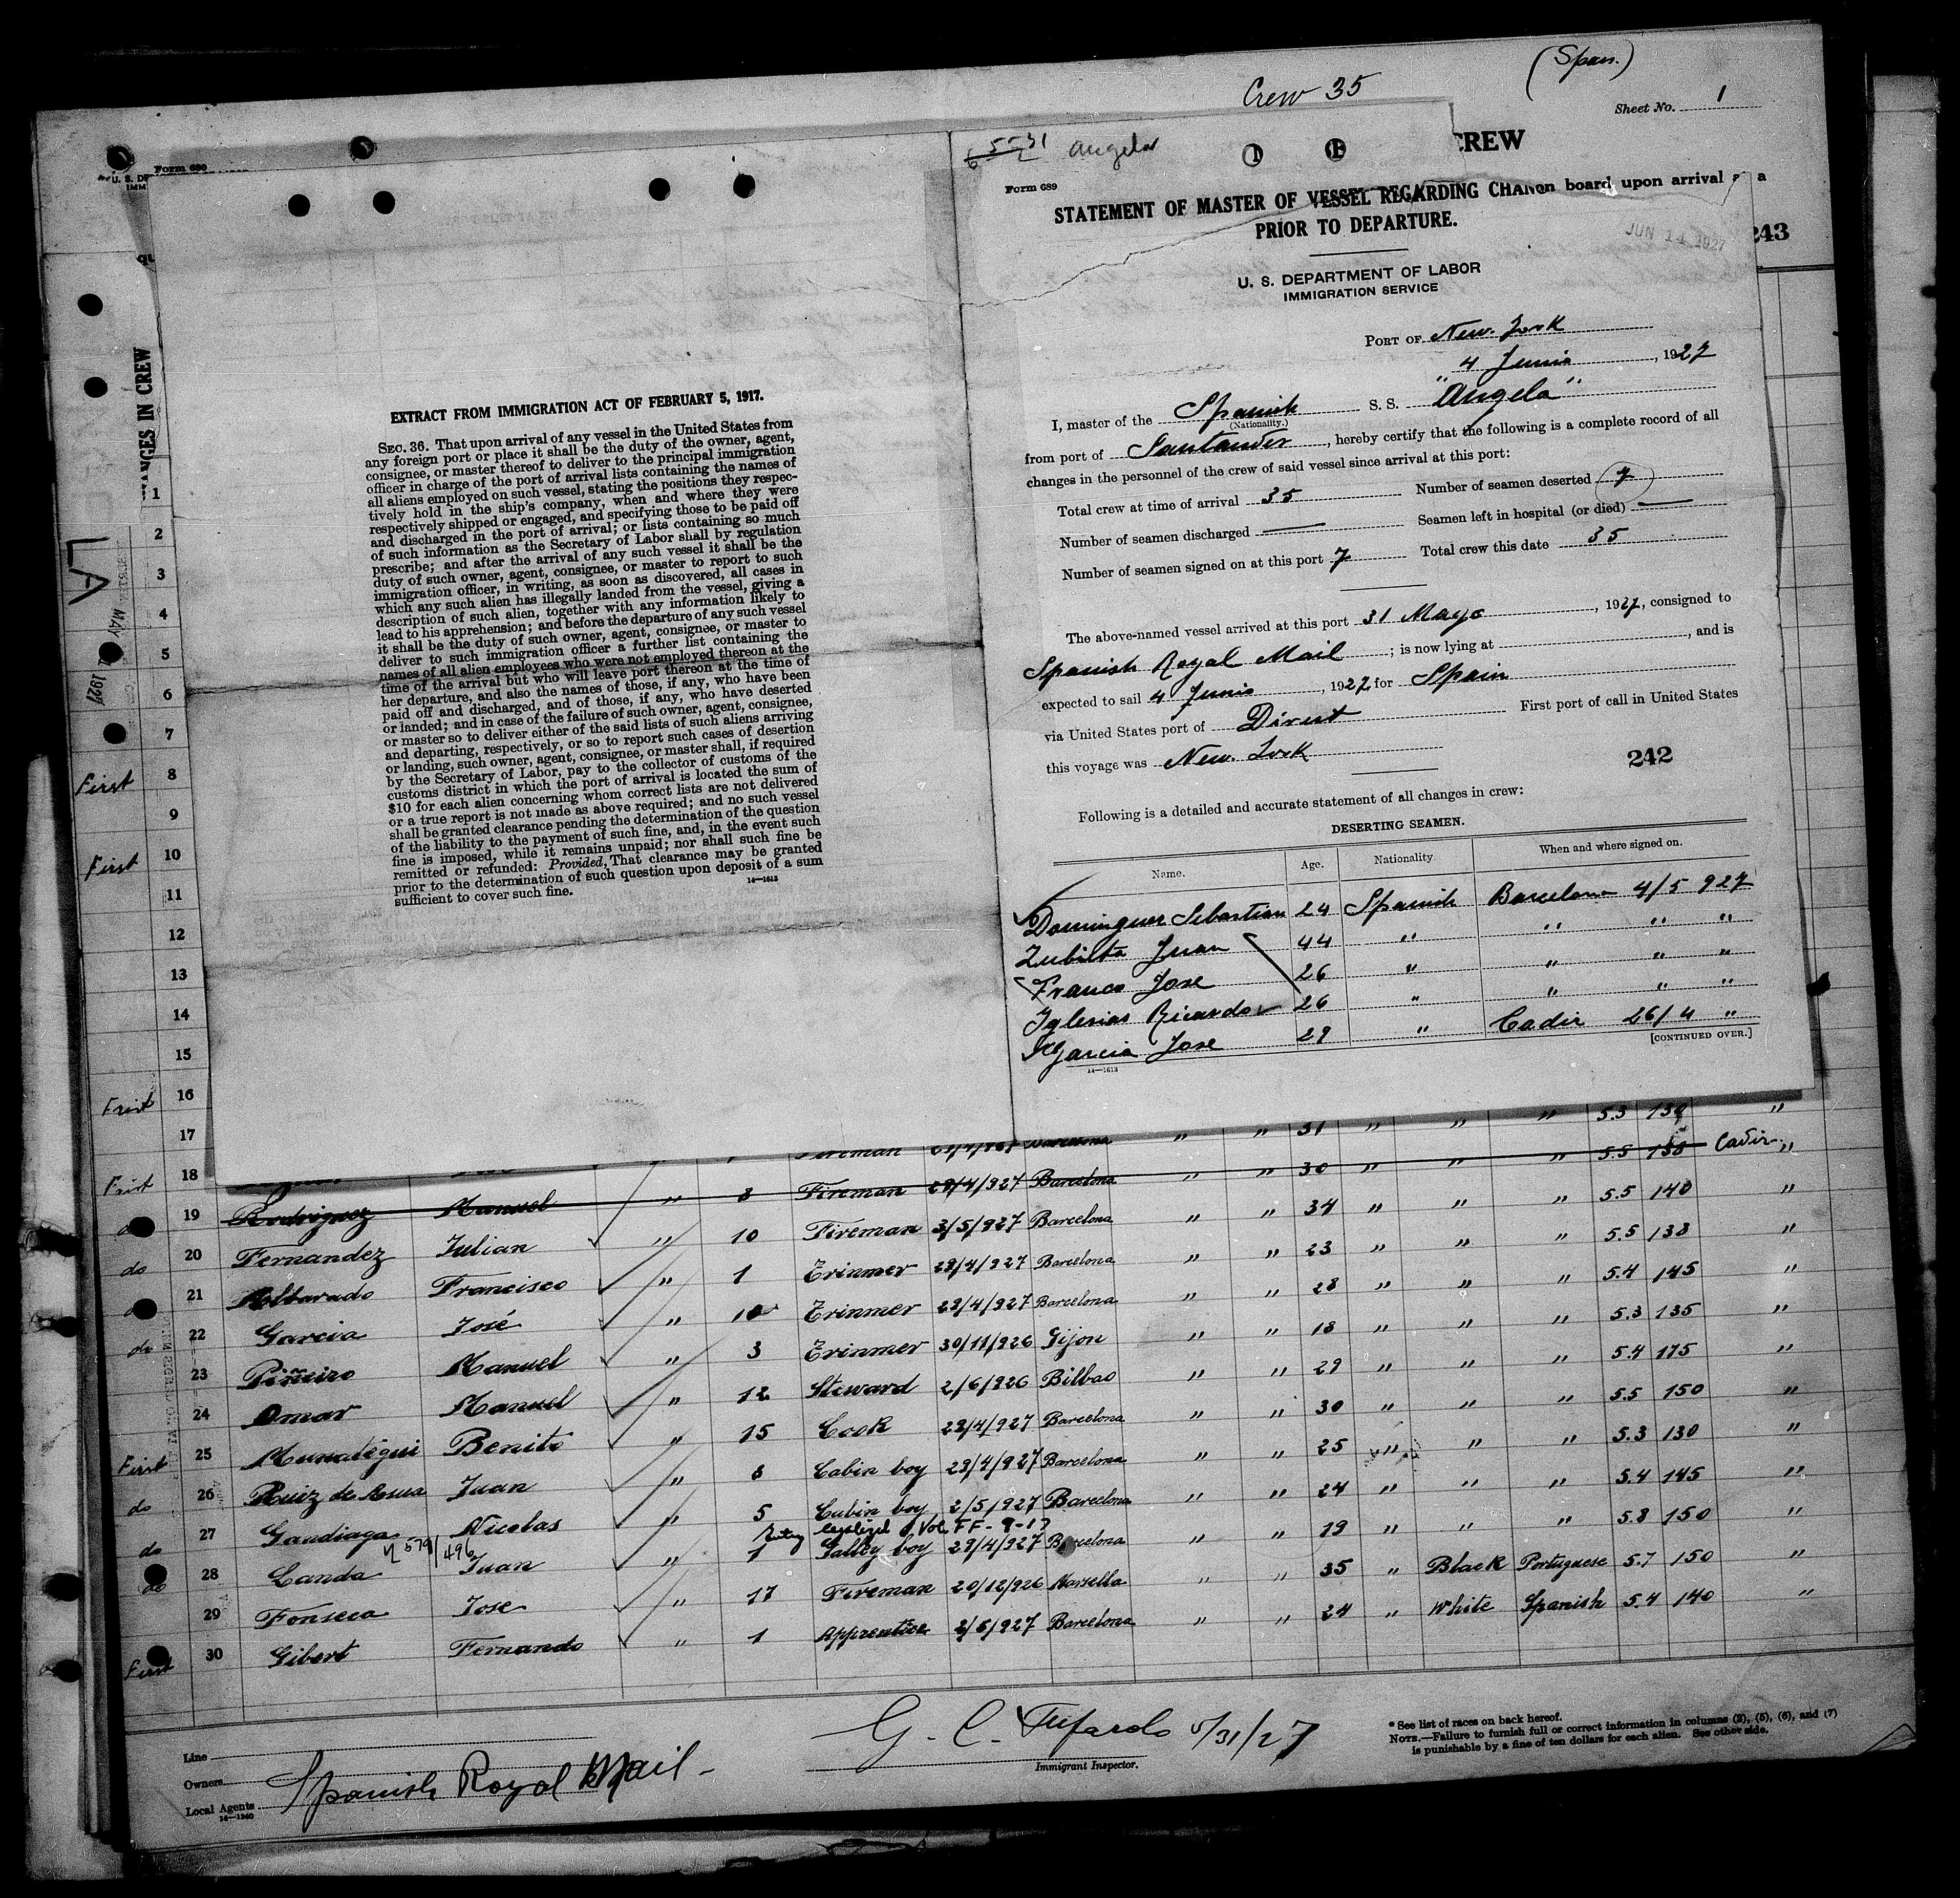 (Span.)
Crew 35
Sheet No. 1
CREW
5-31 Angela
Form 689
STATEMENT OF MASTER OF VESSEL REGARDING CHAN
on board upon arrival
PRIOR TO DEPARTURE.
JUN 14 1927
243
U. S. DEPARTMENT OF LABOR
IMMIGRATION SERVICE
PORT OF New-York
4 Junio, 1927
I, master of the Spanish S. S. "Angela"
(Nationality.)
from port of Santander, hereby certify that the following is a complete record of all
changes in the personnel of the crew of said vessel since arrival at this port:
Total crew at time of arrival 35 Number of seamen deserted 7
Number of seamen discharged — Seamen left in hospital (or died) —
Number of seamen signed on at this port 7 Total crew this date 35
The above-named vessel arrived at this port 31 Mayo, 1927, consigned to
Spanish Royal Mail; is now lying at , and is
expected to sail 4 Junio, 1927, for Spain
via United States port of Direct First port of call in United States
this voyage was New-York
242
Following is a detailed and accurate statement of all changes in crew:
DESERTING SEAMEN.
Name. Age. Nationality. When and where signed on.
Dominguez Sebastian 24 Spanish Barcelona 4/5 927
Zubilta Juan 44 " " " "
Franco Jose 26 " " " "
Iglesias Ricardo 26 " " " "
Garcia Jose 29 " Cadiz 26/4 "
[CONTINUED OVER.]
14—1613
Form 689
EXTRACT FROM IMMIGRATION ACT OF FEBRUARY 5, 1917.
SEC. 36. That upon arrival of any vessel in the United States from
any foreign port or place it shall be the duty of the owner, agent,
consignee, or master thereof to deliver to the principal immigration
officer in charge of the port of arrival lists containing the names of
all aliens employed on such vessel, stating the positions they respec-
tively hold in the ship's company, when and where they were
respectively shipped or engaged, and specifying those to be paid off
and discharged in the port of arrival; or lists containing so much
of such information as the Secretary of Labor shall by regulation
prescribe; and after the arrival of any such vessel it shall be the
duty of such owner, agent, consignee, or master to report to such
immigration officer, in writing, as soon as discovered, all cases in
which any such alien has illegally landed from the vessel, giving a
description of such alien, together with any information likely to
lead to his apprehension; and before the departure of any such vessel
it shall be the duty of such owner, agent, consignee, or master to
deliver to such immigration officer a further list containing the
names of all alien employees who were not employed thereon at the
time of the arrival but who will leave port thereon at the time of
her departure, and also the names of those, if any, who have been
paid off and discharged, and of those, if any, who have deserted
or landed; and in case of the failure of such owner, agent, consignee,
or master so to deliver either of the said lists of such aliens arriving
and departing, respectively, or so to report such cases of desertion
or landing, such owner, agent, consignee, or master shall, if required
by the Secretary of Labor, pay to the collector of customs of the
customs district in which the port of arrival is located the sum of
$10 for each alien concerning whom correct lists are not delivered
or a true report is not made as above required; and no such vessel
shall be granted clearance pending the determination of the question
of the liability to the payment of such fine, and, in the event such
fine is imposed, while it remains unpaid; nor shall such fine be
remitted or refunded: Provided, That clearance may be granted
prior to the determination of such question upon deposit of a sum
sufficient to cover such fine.
14—1613
ANGES IN CREW
LA
MAY 1927
1
2
3
4
5
6
7
First 8
9
First 10
11
12
13
14
15
First 16
17 " " 31 " " " 5.3 134 "
First 18 Fireman Barcelona " " 30 " " " 5.5 138 Cadiz "
19 Rodriguez Manuel " 8 Fireman 28/4/927 Barcelona " " 34 " " " 5.5 140 "
do 20 Fernandez Julian " 10 Fireman 3/5/927 Barcelona " " 23 " " " 5.5 138 "
21 Albarado Francisco " 1 Trimmer 28/4/927 Barcelona " " 28 " " " 5.4 145 "
do 22 Garcia José " 10 Trimmer 28/4/927 Barcelona " " 18 " " " 5.3 135 "
23 Piñeiro Manuel " 3 Trimmer 30/11/926 Gijon " " 29 " " " 5.4 175 "
24 Omar Manuel " 12 Steward 2/6/926 Bilbao " " 30 " " " 5.5 150 "
First 25 Munategui Benito " 15 Cook 28/4/927 Barcelona " " 25 " " " 5.3 130 "
do 26 Ruiz de Asua Juan " 8 Cabin boy 28/4/927 Barcelona " " 24 " " " 5.4 145 "
do 27 Gandiaga Nicolas " 5 Cabin boy 2/5/927 Barcelona " " 19 " " " 5.8 150 "
Entry legalized Vol. FF-9-17
do 28 Canda Juan " 1 Galley boy 28/4/927 Barcelona " " 35 " Black Portuguese 5.7 150 "
29 Fonseca Jose " 17 Fireman 20/12/926 Marsella " " 24 " White Spanish 5.4 140 "
First 30 Gibert Fernando " 1 Apprentice 2/5/927 Barcelona
Line
Owners
Local Agents Spanish Royal Mail -
14—1240
5/31/27
Immigrant Inspector.
* See list of races on back hereof.
NOTE.—Failure to furnish full or correct information in columns (3), (5), (6), and (7)
is punishable by a fine of ten dollars for each alien. See other side.